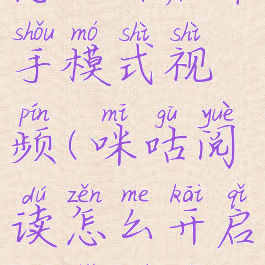 shǒu mó shì shì
手模式视
pín mī gū yuè
频(咪咕阅
dú zěn me kāi qǐ
读怎么开启